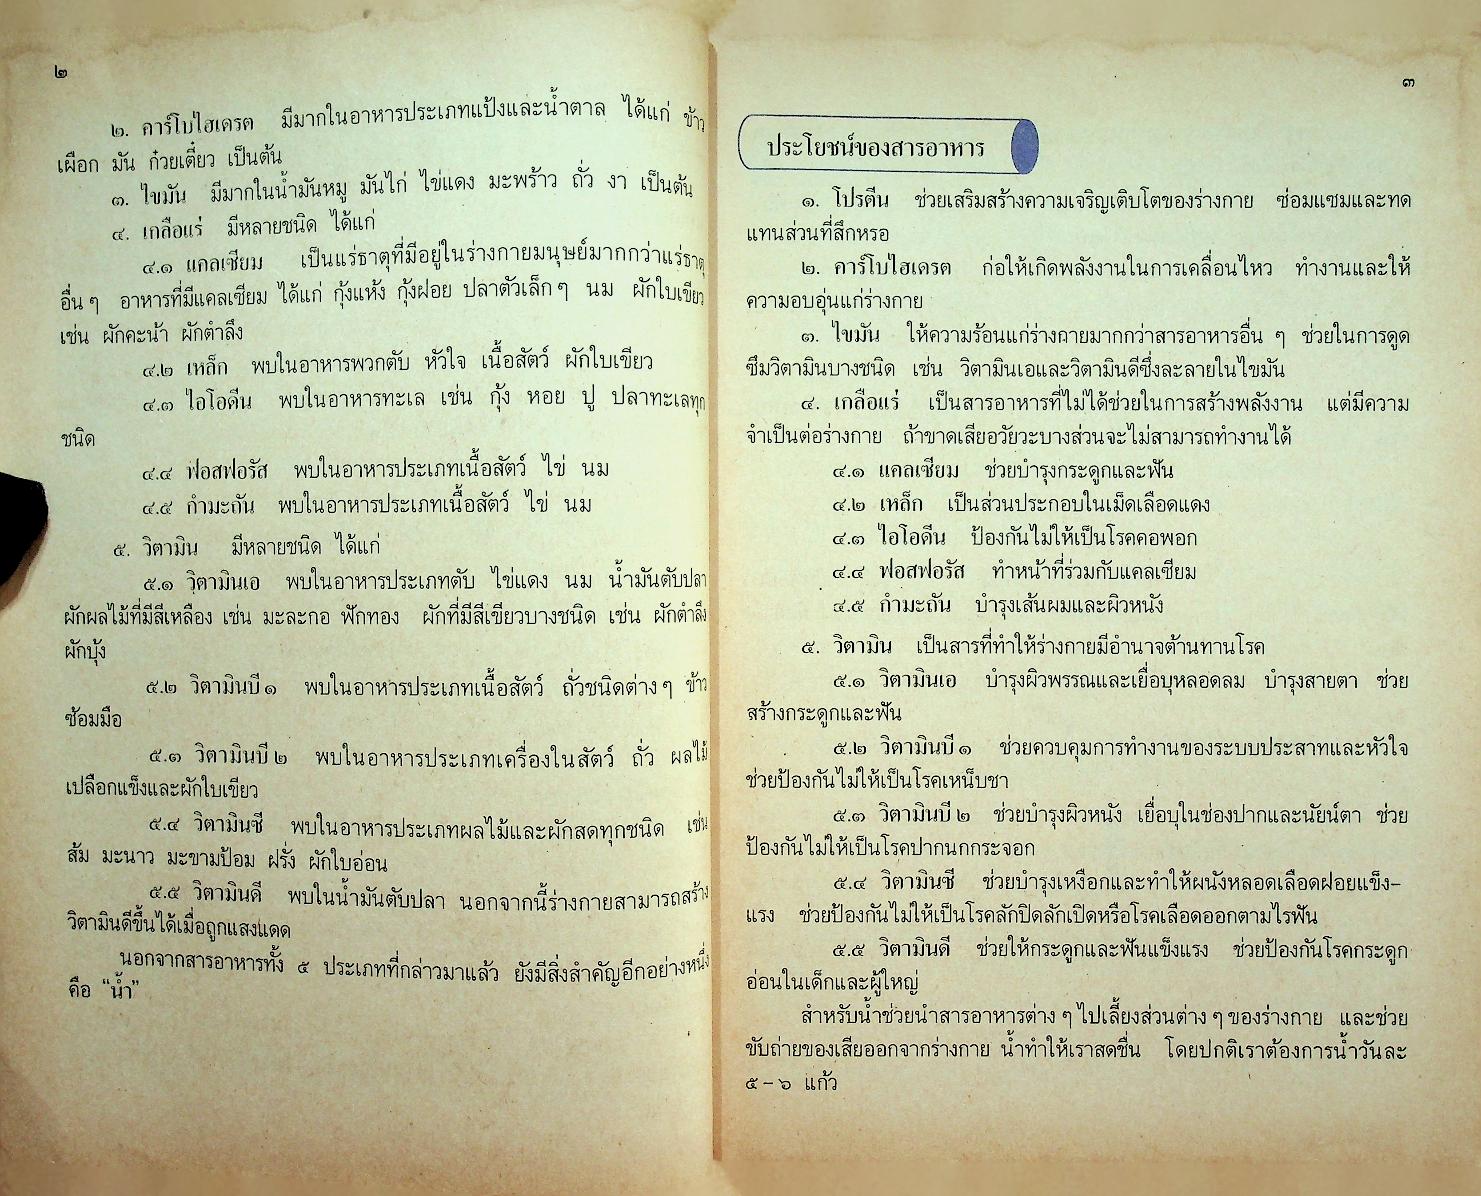 ๒
๒. คาร์โบไฮเดรต มีมากในอาหารประเภทแป้งและน้ำตาล ได้แก่ ข้าว
เผือก มัน ก๋วยเตี๋ยว เป็นต้น
๓. ไขมัน มีมากในน้ำมันหมู มันไก่ ไข่แดง มะพร้าว ถั่ว งา เป็นต้น
๔. เกลือแร่ มีหลายชนิด ได้แก่
๔.๑ แคลเซียม เป็นแร่ธาตุที่มีอยู่ในร่างกายมนุษย์มากกว่าแร่ธาตุ
อื่นๆ อาหารที่มีแคลเซียม ได้แก่ กุ้งแห้ง กุ้งฝอย ปลาตัวเล็กๆ นม ผักใบเขียว
เช่น ผักคะน้า ผักตำลึง
๔.๒ เหล็ก พบในอาหารพวกตับ หัวใจ เนื้อสัตว์ ผักใบเขียว
๔.๓ ไอโอดีน พบในอาหารทะเล เช่น กุ้ง หอย ปู ปลาทะเลทุก
ชนิด
๔.๔ ฟอสฟอรัส พบในอาหารประเภทเนื้อสัตว์ ไข่ นม
๔.๕ กำมะถัน พบในอาหารประเภทเนื้อสัตว์ ไข่ นม
๕. วิตามิน มีหลายชนิด ได้แก่
๕.๑ วิตามินเอ พบในอาหารประเภทตับ ไข่แดง นม น้ำมันตับปลา
ผักผลไม้ที่มีสีเหลือง เช่น มะละกอ ฟักทอง ผักที่มีสีเขียวบางชนิด เช่น ผักตำลึง
ผักบุ้ง
๕.๒ วิตามินบี๑ พบในอาหารประเภทเนื้อสัตว์ ถั่วชนิดต่างๆ ข้าว
ซ้อมมือ
๕.๓ วิตามินบี๒ พบในอาหารประเภทเครื่องในสัตว์ ถั่ว ผลไม้
เปลือกแข็งและผักใบเขียว
๕.๔ วิตามินซี พบในอาหารประเภทผลไม้และผักสดทุกชนิด เช่น
ส้ม มะนาว มะขามป้อม ฝรั่ง ผักใบอ่อน
๕.๕ วิตามินดี พบในน้ำมันตับปลา นอกจากนี้ร่างกายสามารถสร้าง
วิตามินดีขึ้นได้เมื่อถูกแสงแดด
นอกจากสารอาหารทั้ง ๕ ประเภทที่กล่าวมาแล้ว ยังมีสิ่งสำคัญอีกอย่างหนึ่ง
คือ “น้ำ”
๓
ประโยชน์ของสารอาหาร
๑. โปรตีน ช่วยเสริมสร้างความเจริญเติบโตของร่างกาย ซ่อมแซมและทด
แทนส่วนที่สึกหรอ
๒. คาร์โบไฮเดรต ก่อให้เกิดพลังงานในการเคลื่อนไหว ทำงานและให้
ความอบอุ่นแก่ร่างกาย
๓. ไขมัน ให้ความร้อนแก่ร่างกายมากกว่าสารอาหารอื่น ๆ ช่วยในการดูด
ซึมวิตามินบางชนิด เช่น วิตามินเอและวิตามินดีซึ่งละลายในไขมัน
๔. เกลือแร่ เป็นสารอาหารที่ไม่ได้ช่วยในการสร้างพลังงาน แต่มีความ
จำเป็นต่อร่างกาย ถ้าขาดเสียอวัยวะบางส่วนจะไม่สามารถทำงานได้
๔.๑ แคลเซียม ช่วยบำรุงกระดูกและฟัน
๔.๒ เหล็ก เป็นส่วนประกอบในเม็ดเลือดแดง
๔.๓ ไอโอดีน ป้องกันไม่ให้เป็นโรคคอพอก
๔.๔ ฟอสฟอรัส ทำหน้าที่ร่วมกับแคลเซียม
๔.๕ กำมะถัน บำรุงเส้นผมและผิวหนัง
๕. วิตามิน เป็นสารที่ทำให้ร่างกายมีอำนาจต้านทานโรค
๕.๑ วิตามินเอ บำรุงผิวพรรณและเยื่อบุหลอดลม บำรุงสายตา ช่วย
สร้างกระดูกและฟัน
๕.๒ วิตามินบี๑ ช่วยควบคุมการทำงานของระบบประสาทและหัวใจ
ช่วยป้องกันไม่ให้เป็นโรคเหน็บชา
๕.๓ วิตามินบี๒ ช่วยบำรุงผิวหนัง เยื่อบุในช่องปากและนัยน์ตา ช่วย
ป้องกันไม่ให้เป็นโรคปากนกกระจอก
๕.๔ วิตามินซี ช่วยบำรุงเหงือกและทำให้ผนังหลอดเลือดฝอยแข็ง-
แรง ช่วยป้องกันไม่ให้เป็นโรคลักปิดลักเปิดหรือโรคเลือดออกตามไรฟัน
๕.๕ วิตามินดี ช่วยให้กระดูกและฟันแข็งแรง ช่วยป้องกันโรคกระดูก
อ่อนในเด็กและผู้ใหญ่
สำหรับน้ำช่วยนำสารอาหารต่าง ๆ ไปเลี้ยงส่วนต่าง ๆ ของร่างกาย และช่วย
ขับถ่ายของเสียออกจากร่างกาย น้ำทำให้เราสดชื่น โดยปกติเราต้องการน้ำวันละ
๕ – ๖ แก้ว